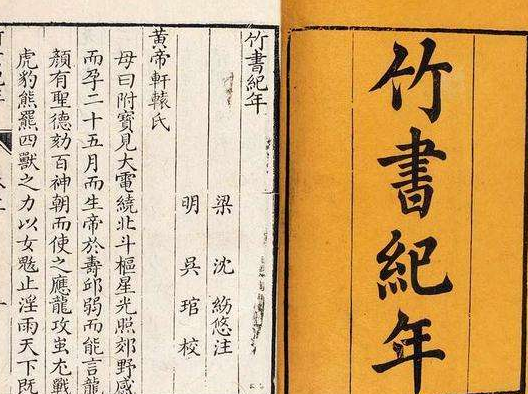 竹書紀年
竹書紀年
梁 沈 約 注
明 吳 琯 校
黃帝軒轅氏
母曰附寶見大電繞北斗樞星光照郊野感
而孕二十五月而生帝於壽邱弱而能言龍
顏有聖德劾百神朝而使之應龍攻蚩尤戰
虎豹熊羆四獸之力以女魃止淫雨天下既